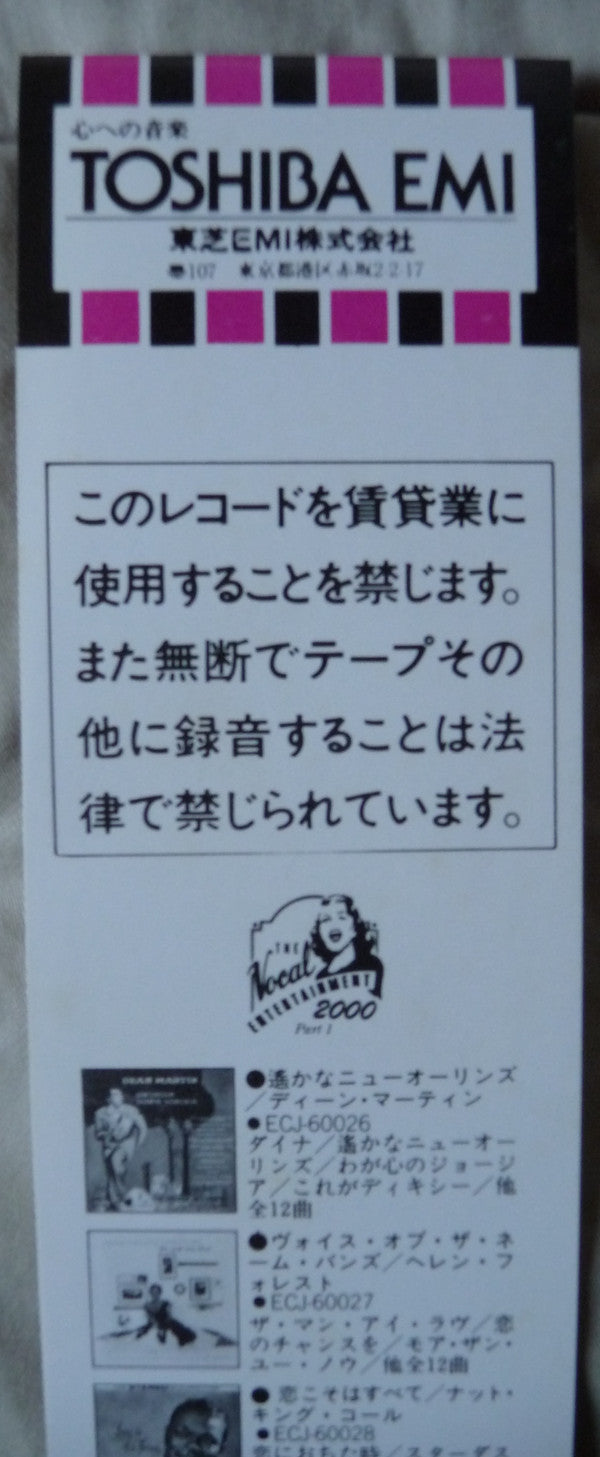 心への音楽
TOSHIBA EMI
東芝EMI株式会社
〒107 東京都港区赤坂2-2-17
このレコードを賃貸業に
使用することを禁じます。
また無断でテープその
他に録音することは法
律で禁じられています。
THE
Vocal
ENTERTAINMENT
2000
Part 1
DEAN MARTIN
●遙かなニューオーリンズ
／ディーン・マーティン
●ECJ-60026
ダイナ／遙かなニューオー
リンズ／わが心のジョージ
ア／これがディキシー／他
全12曲
●ヴォイス・オブ・ザ・ネ
ーム・バンズ／ヘレン・フ
ォレスト
●ECJ-60027
ザ・マン・アイ・ラヴ／恋
のチャンスを／モア・ザン・
ユー・ノウ／他全12曲
●恋こそはすべて／ナット・
キング・コール
●ECJ-60028
恋におちた時／スターダス